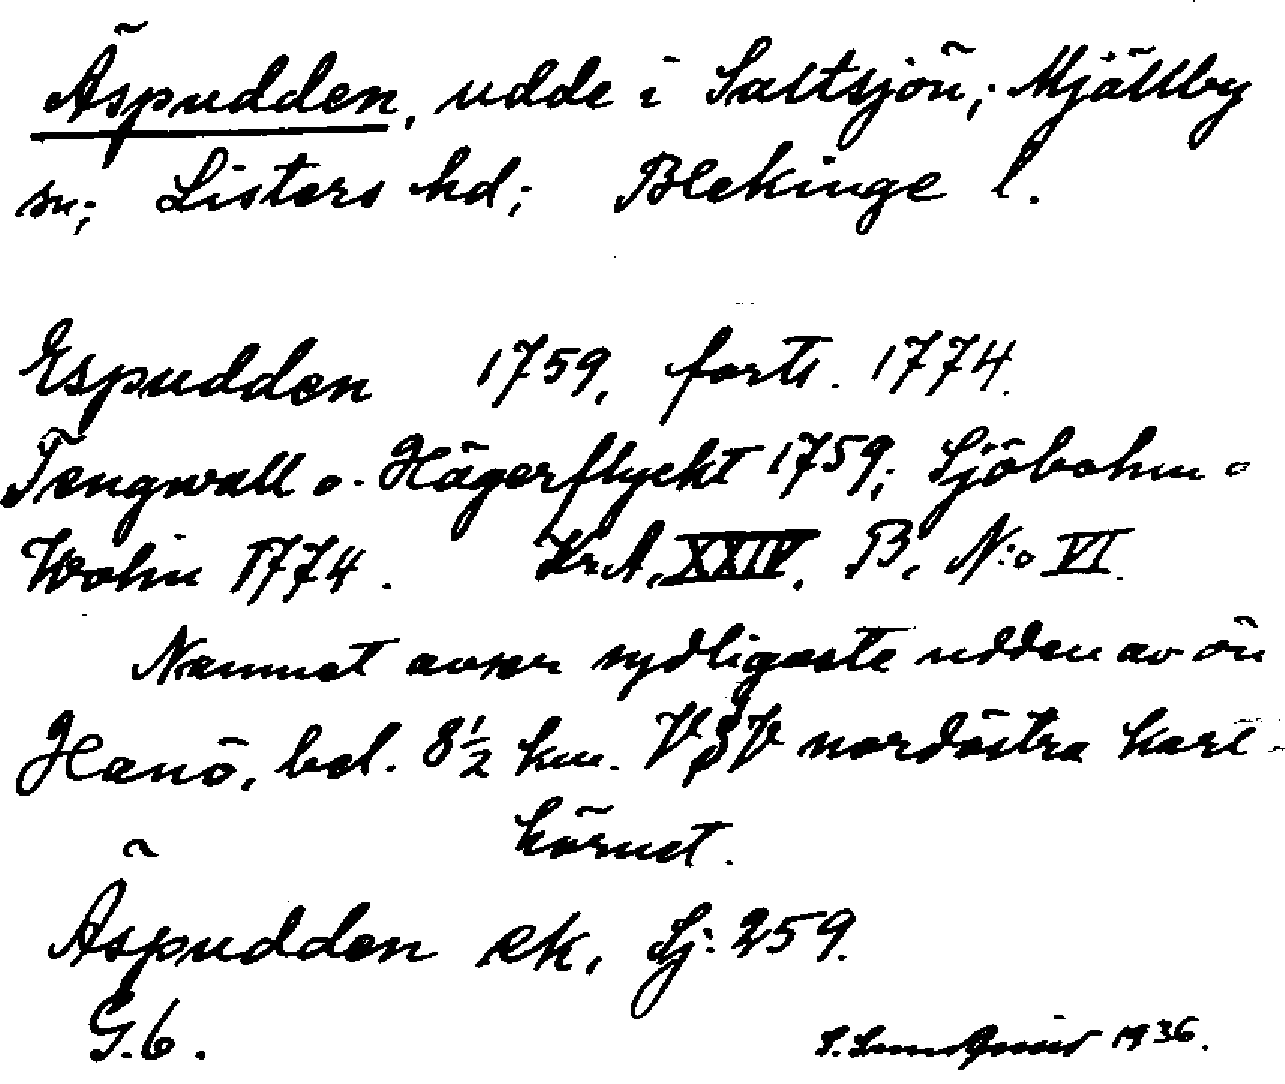 Äspudden, udde i Saltsjön; Mjällby
sn; Listers hd; Blekinge l.
Espudden 1759, forts. 1774.
Tengwall o. Hägerflyckt 1759; Sjöbohm o
Wohin 1774. Kr.A. XXIV. B. N:o VI.
Namnet avser sydligaste udden av ön
Hanö, bel. 8½ km. VSV nordöstra kart-
hörnet.
Äspudden ek. Sj: 259.
G.6.
1936.